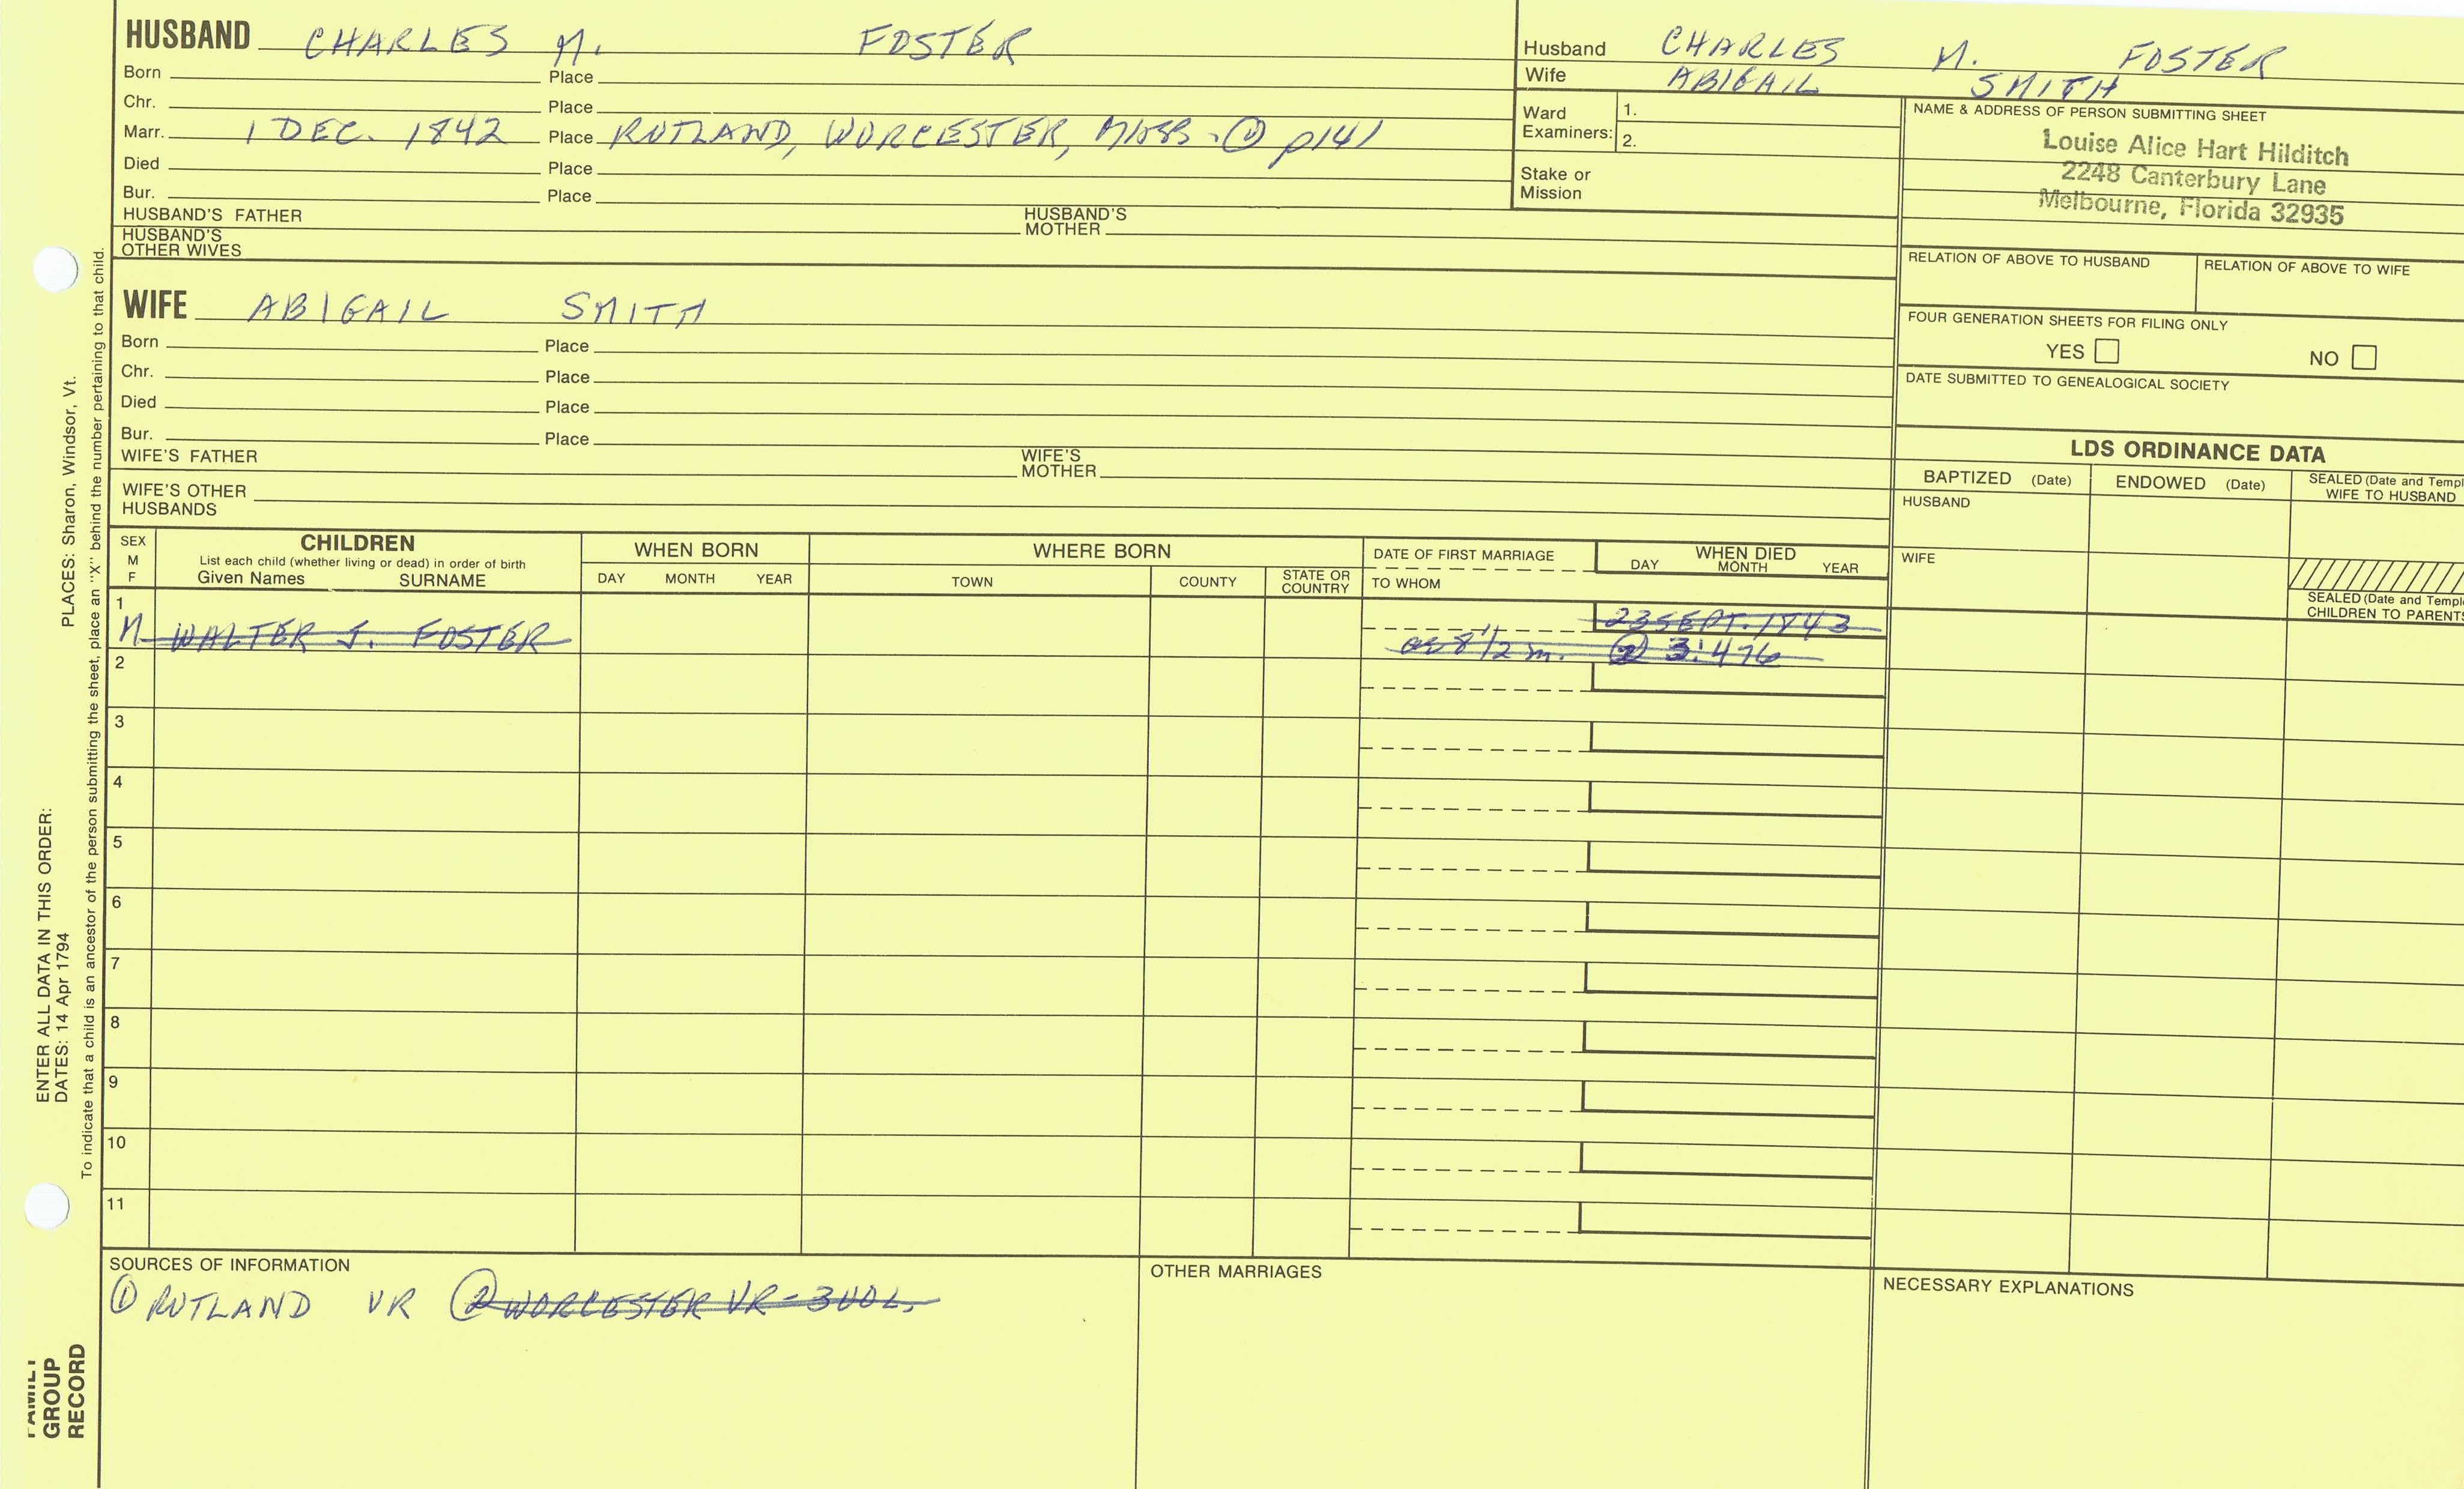 HUSBAND CHARLES M. FOSTER
Born Place
Chr. Place
Marr. 1 DEC. 1842 Place RUTLAND, WORCESTER, MASS. ① p141
Died Place
Bur. Place
HUSBAND'S FATHER HUSBAND'S MOTHER
HUSBAND'S OTHER WIVES
Husband CHARLES M. FOSTER
Wife ABIGAIL SMITH
Ward Examiners: 1.
2.
Stake or Mission
NAME & ADDRESS OF PERSON SUBMITTING SHEET
Louise Alice Hart Hilditch
2248 Canterbury Lane
Melbourne, Florida 32935
RELATION OF ABOVE TO HUSBAND RELATION OF ABOVE TO WIFE
FOUR GENERATION SHEETS FOR FILING ONLY
YES NO
DATE SUBMITTED TO GENEALOGICAL SOCIETY
WIFE ABIGAIL SMITH
Born Place
Chr. Place
Died Place
Bur. Place
WIFE'S FATHER WIFE'S MOTHER
WIFE'S OTHER HUSBANDS
LDS ORDINANCE DATA
BAPTIZED (Date) ENDOWED (Date) SEALED (Date and Templ
WIFE TO HUSBAND
HUSBAND
WIFE
SEALED (Date and Templ
CHILDREN TO PARENTS
SEX
M
F
CHILDREN
List each child (whether living or dead) in order of birth
Given Names SURNAME
WHEN BORN
DAY MONTH YEAR
WHERE BORN
TOWN COUNTY STATE OR COUNTRY
DATE OF FIRST MARRIAGE
TO WHOM
WHEN DIED
DAY MONTH YEAR
1
M WALTER J. FOSTER 23 SEPT. 1843
ae 8 1/2 m. ② 3:476
2
3
4
5
6
7
8
9
10
11
SOURCES OF INFORMATION
① RUTLAND VR ② WORCESTER VR - 3 VOL.
OTHER MARRIAGES
NECESSARY EXPLANATIONS
ENTER ALL DATA IN THIS ORDER:
DATES: 14 Apr 1794 PLACES: Sharon, Windsor, Vt.
To indicate that a child is an ancestor of the person submitting the sheet, place an "X" behind the number pertaining to that child.
FAMILY
GROUP
RECORD